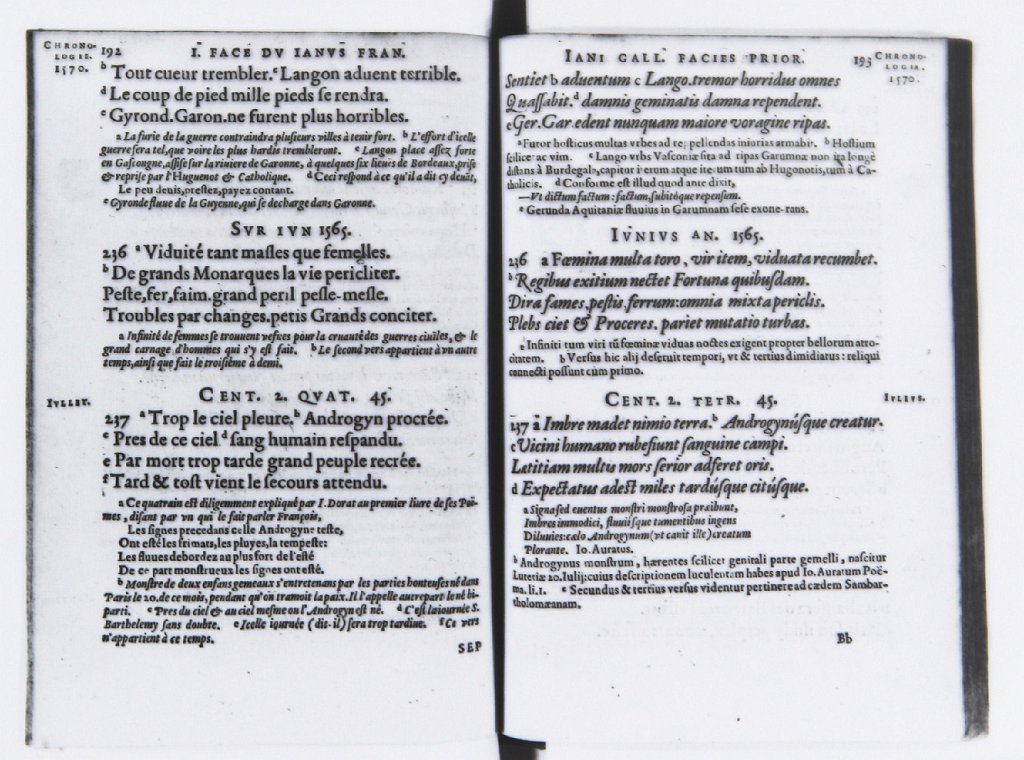 CHRONO-
LOGIE.
1570.
192
I. FACE DV IANVS FRAN.
b Tout cueur trembler. c Langon aduent terrible.
d Le coup de pied mille pieds se rendra.
e Gyrond. Garon. ne furent plus horribles.
a La furie de la guerre contraindra plusieurs villes à tenir fort. b L'effort d'icelle
guerre sera tel, que voire les plus hardis trembleront. c Langon place assez forte
en Gascongne, assise sur la riuiere de Garonne, à quelques six lieuës de Bordeaux, prise
& reprise par l'Huguenot & Catholique. d Ceci respond à ce qu'il a dit cy deuāt,
Le peu deuis, prestez, payez contant.
e Gyronde fluue de la Guyenne, qui se decharge dans Garonne.
SVR IVN 1565.
236 a Viduité tant masles que femelles.
b De grands Monarques la vie pericliter.
Peste, fer, faim. grand peril pesle-mesle.
Troubles par changes. petis Grands conciter.
a Infinité de femmes se trouuent vefues pour la cruauté des guerres ciuiles, & le
grand carnage d'hommes qui s'y est fait. b Le second vers appartient à vn autre
temps, ainsi que fait le troisiéme à demi.
IVLLET.
CENT. 2. QVAT. 45.
237 a Trop le ciel pleure. b Androgyn procrée.
c Pres de ce ciel d sang humain respandu.
e Par mort trop tarde grand peuple recrée.
f Tard & tost vient le secours attendu.
a Ce quatrain est diligemment expliqué par I. Dorat au premier liure de ses Poë-
mes, disant par vn qui le fait parler François,
Les signes precedans celle Androgyne teste,
Ont esté les frimats, les pluyes, la tempeste:
Les fluues debordez au plus fort de l'esté
De ce part monstrueux les signes ont esté.
b Monstre de deux enfans gemeaux s'entretenans par les parties honteuses né dans
Paris le 20. de ce mois, pendant qu'on tramoit la paix. Il l'appelle autrepart le né bi-
parti. c Pres du ciel & au ciel mesme ou l'Androgyn est né. d C'est la iournée S.
Barthelemy sans doubte. e Icelle iournée (dit-il) sera trop tardiue. f Ce vers
n'appartient à ce temps.
SEP
IANI GALL. FACIES PRIOR.
193
CHRONO-
LOGIA.
1570.
Sentiet b aduentum c Lango. tremor horridus omnes
Quassabit. d damnis geminatis damna rependent.
e Ger. Gar edent nunquam maiore voragine ripas.
a Furor hosticus multas vrbes ad repellendas iniurias armabit. b Hostium
scilicet ac vim. c Lango vrbs Vasconiæ sita ad ripas Garumnæ non ita longè
distans à Burdegala, capitur iterum atque iterum tum ab Hugonotis, tum à Ca-
tholicis. d Conforme est illud quod ante dixit,
—Vt dictum factum: factum, subitóque repensum.
e Gerunda Aquitaniæ fluuius in Garumnam sese exonerans.
IVNIVS AN. 1565.
236 a Fœmina multa toro, vir item, viduata recumbet.
b Regibus exitium nectet Fortuna quibusdam.
Dira fames, pestis, ferrum: omnia mixta periclis.
Plebs ciet & Proceres. pariet mutatio turbas.
a Infiniti tum viri tū fœminæ viduas noctes exigent propter bellorum atro-
citatem. b Versus hic alij deseruit tempori, vt & tertius dimidiatus: reliqui
connecti possunt cum primo.
IVLIVS.
CENT. 2. TETR. 45.
237 a Imbre madet nimio terra. b Androgynúsque creatur.
c Vicini humano rubefiunt sanguine campi.
Lætitiam multis mors serior adferet oris.
d Expectatus adest miles tardúsque citúsque.
a Signa sed euentus monstri monstrosa præibunt,
Imbres immodici, fluuiisque tumentibus ingens
Diluuies: cælo Androgynum (vt canit ille) creatum
Plorante. Io. Auratus.
b Androgynus monstrum, hærentes scilicet genitali parte gemelli, nascitur
Lutetiæ 20. Iulij: cuius descriptionem luculentam habes apud Io. Auratum Poë-
ma. li. 1. c Secundus & tertius versus videntur pertinere ad cædem Sambar-
tholomæanam.
Bb